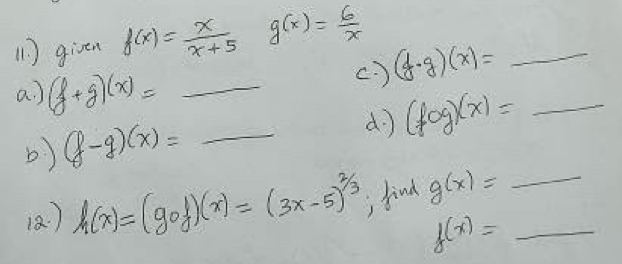 11.) given f(x) = x/(x+5)   g(x) = 6/x
a.) (f+g)(x) = ____
b.) (f-g)(x) = ____
c.) (f·g)(x) = ____
d.) (fog)(x) = ____
12.) h(x) = (gof)(x) = (3x-5)^(2/3); find g(x) = ____
f(x) = ____